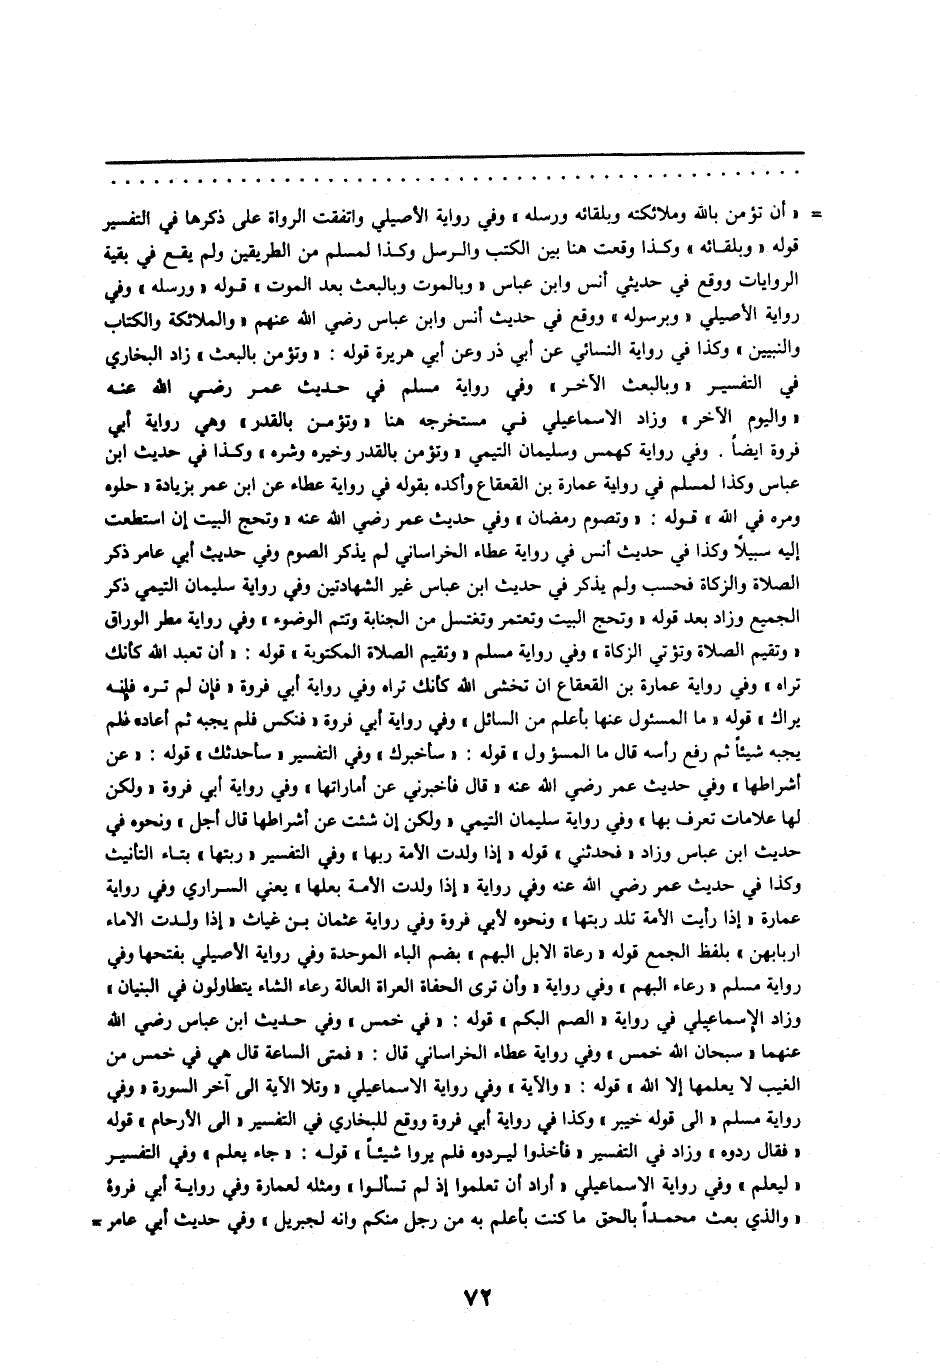 = « أن تؤمن بالله وملائكته وبلقائه ورسله » وفي رواية الأصيلي واتفقت الرواة على ذكرها في التفسير
قوله « وبلقـائه » وكـذا وقعت هنا بين الكتب والـرسل وكـذا لمسلم من الطريقين ولم يقـع في بقية
الروايات ووقع في حديثي أنس وابن عباس « وبالموت وبالبعث بعد الموت » قـوله « ورسله » وفي
رواية الأصيلي « وبرسوله » ووقع في حديث أنس وابن عباس رضي الله عنهم « والملائكة والكتاب
والنبيين » وكذا في رواية النسائي عن أبي ذر وعن أبي هريرة قوله : « وتؤمن بالبعث » زاد البخاري
في التفسير « وبالبعث الآخـر » وفي رواية مسلم في حـديث عمـر رضـي الله عنـه
« واليوم الآخر » وزاد الاسماعيلي فـي مستخرجه هنا « وتؤمـن بالقدر » وهي رواية أبي
فروة ايضاً . وفي رواية كهمس وسليمان التيمي « وتؤمن بالقدر وخيره وشره » وكـذا في حديث ابن
عباس وكذا لمسلم في رواية عمارة بن القعقاع وأكده بقوله في رواية عطاء عن ابن عمر بزيادة « حلوه
ومره في الله » قـوله : « وتصوم رمضان » وفي حديث عمر رضي الله عنه « وتحج البيت إن استطعت
إليه سبيلاً وكذا في حديث أنس في رواية عطاء الخراساني لم يذكر الصوم وفي حديث أبي عامر ذكر
الصلاة والزكاة فحسب ولم يذكر في حديث ابن عباس غير الشهادتين وفي رواية سليمان التيمي ذكر
الجميع وزاد بعد قوله « وتحج البيت وتعتمر وتغتسل من الجنابة وتتم الوضوء » وفي رواية مطر الوراق
« وتقيم الصلاة وتؤتي الزكاة » وفي رواية مسلم « وتقيم الصلاة المكتوبة » قوله : « أن تعبد الله كأنك
تراه » وفي رواية عمارة بن القعقاع ان تخشى الله كأنك تراه وفي رواية أبي فروة « فإن لم تـره فإنـه
يراك » قوله « ما المسئول عنها بأعلم من السائل » وفي رواية أبي فروة « فنكس فلم يجبه ثم أعاده فلم
يجبه شيئاً ثم رفع رأسه قال ما المسؤول » قوله : « سأخبرك » وفي التفسير « سأحدثك » قوله : « عن
أشراطها » وفي حديث عمر رضي الله عنه « قال فأخبرني عن أماراتها » وفي رواية أبي فروة « ولكن
لها علامات تعرف بها » وفي رواية سليمان التيمي « ولكن إن شئت عن أشراطها قال أجل » ونحوه في
حديث ابن عباس وزاد « فحدثني » قوله « إذا ولدت الأمة ربها » وفي التفسير « ربتها » بتـاء التأنيث
وكذا في حديث عمر رضي الله عنه وفي رواية « إذا ولدت الأمـة بعلها » يعني السـراري وفي رواية
عمارة « إذا رأيت الأمة تلد ربتها » ونحوه لأبي فروة وفي رواية عثمان بـن غياث « إذا ولـدت الاماء
اربابهن » بلفظ الجمع قوله « رعاة الابل البهم » بضم الباء الموحدة وفي رواية الأصيلي بفتحها وفي
رواية مسلم « رعاء البهم » وفي رواية « وأن ترى الحفاة العراة العالة رعاء الشاء يتطاولون في البنيان »
وزاد الإسماعيلي في رواية « الصم البكم » قوله : « في خمس » وفي حـديث ابن عباس رضي الله
عنهما « سبحان الله خمس » وفي رواية عطاء الخراساني قال : « فمتى الساعة قال هي في خمس من
الغيب لا يعلمها إلا الله » قوله : « والآية » وفي رواية الاسماعيلي « وتلا الآية الى آخر السورة « وفي
رواية مسلم « الى قوله خبير » وكذا في رواية أبي فروة ووقع للبخاري في التفسير « الى الأرحام » قوله
« فقال ردوه » وزاد في التفسير « فأخذوا ليـردوه فلم يروا شيئـاً » قولـه : « جاء يعلم » وفي التفسيـر
« ليعلم » وفي رواية الاسماعيلي « أراد أن تعلموا إذ لم تسألـوا » ومثله لعمارة وفي روايـة أبي فروة
« والذي بعث محمـداً بالحق ما كنت بأعلم به من رجل منكم وانه لجبريل » وفي حديث أبي عامر =
٧٢